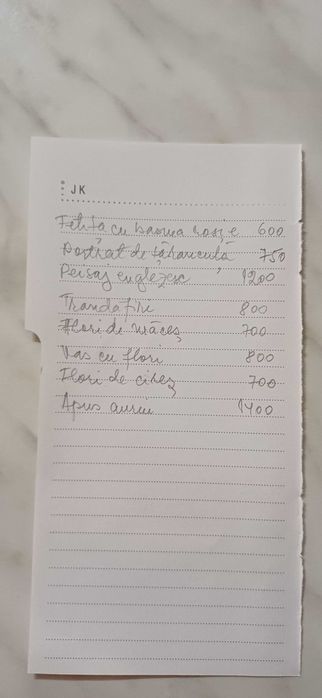 JK
Fetița cu basma roșie 600
Portret de țărancuță 750
Peisaj englezesc 1200
Trandafiri 800
Flori de măceș 700
Vas cu flori 800
Flori de cireș 700
Apus auriu 1400